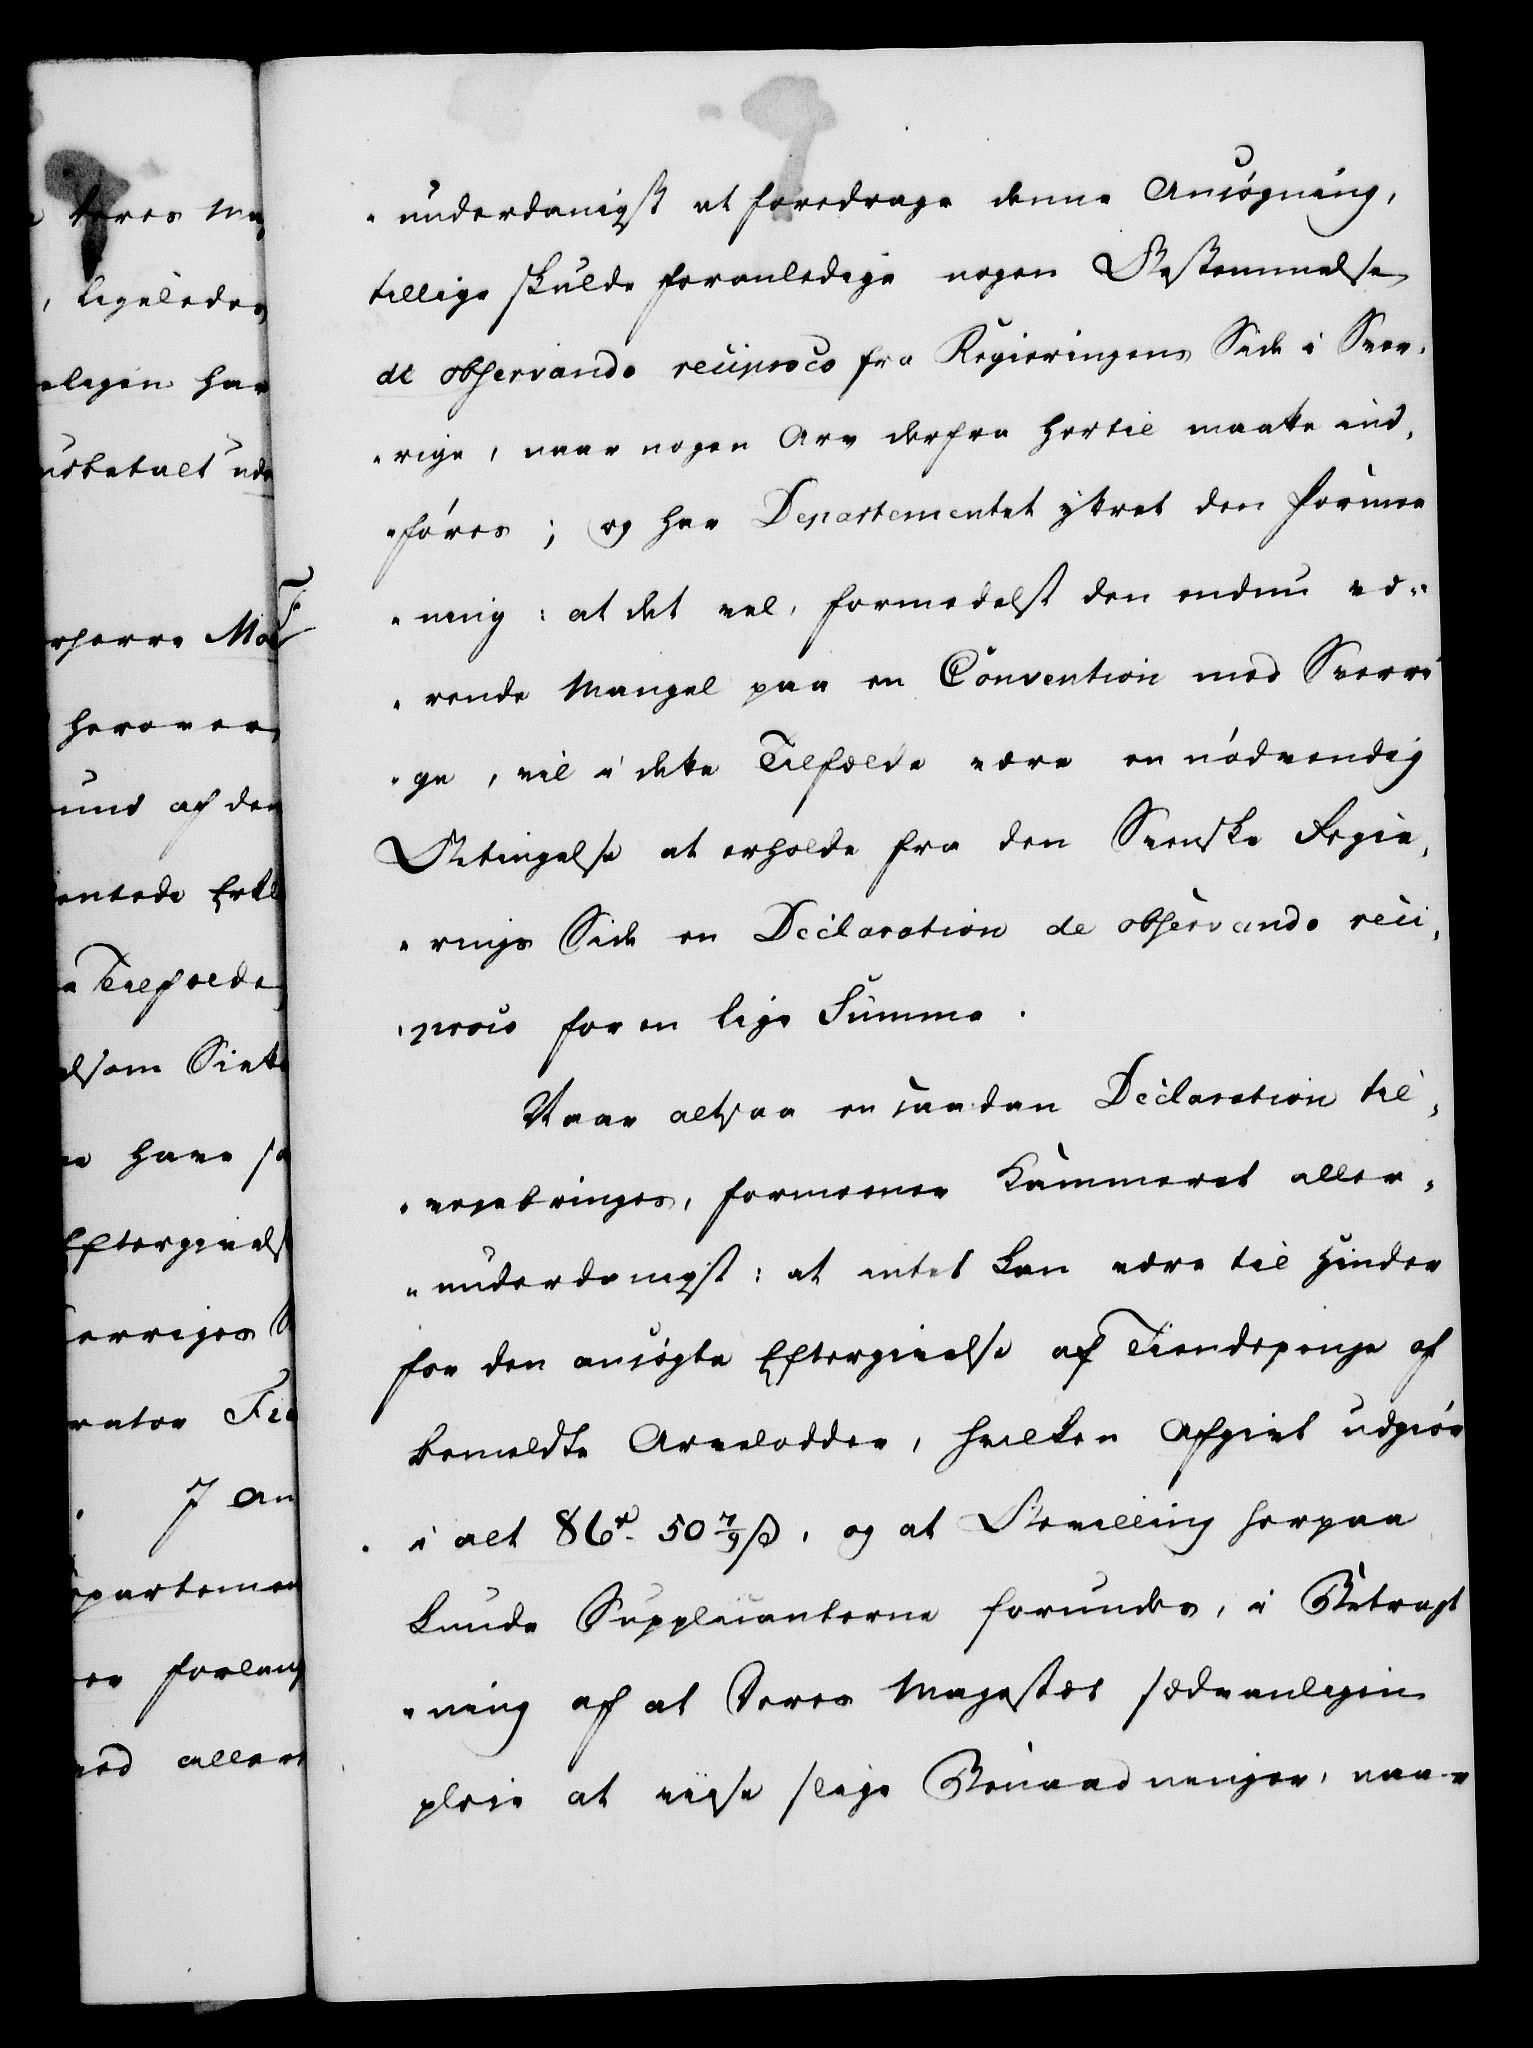 underdanigst at foredrage denne Ansøgning,
tillige skulde foranledige nogen Bestemmelse
de observando reciproco fra Regieringens Side i Sver-
rige, naar nogen Arv derfra hertil maatte ind-
føres; og har Departementet yttret den Formee-
ning: at det vel, formedelst den endnu væ-
rende Mangel paa en Convention med Sverri-
ge, vil i dette Tilfælde være en nødvendig
Betingelse at erholde fra den Svenske Regie-
rings Side en Declaration de observando reci-
proco for en lige Summa.
Naar altsaa en saadan Declaration til-
vejebringes, formeener Kammeret aller-
underdanigst: at intet kan være til Hinder
for den ansøgte Eftergivelse af Tiendepenge af
bemeldte Arvelodder, hvilken Afgivt udgiør
i alt 86 rd. 50 7/9 ß, og at Bevilling herpaa
kunde Supplicanterne forundes, i Betragt-
ning af at Deres Majestæt sædvanligen
pleie at viise slige Benaadninger, naar
Deres Ma
, ligeledes
eligen har
udbetalt ud
rherre Mo
herover
und af den
entede Erkl
Tilfælde
dsom Sviatt
have sa
Eftergivels
erriges
rator Fi
7 an
epartemen
er forlang
ved aller